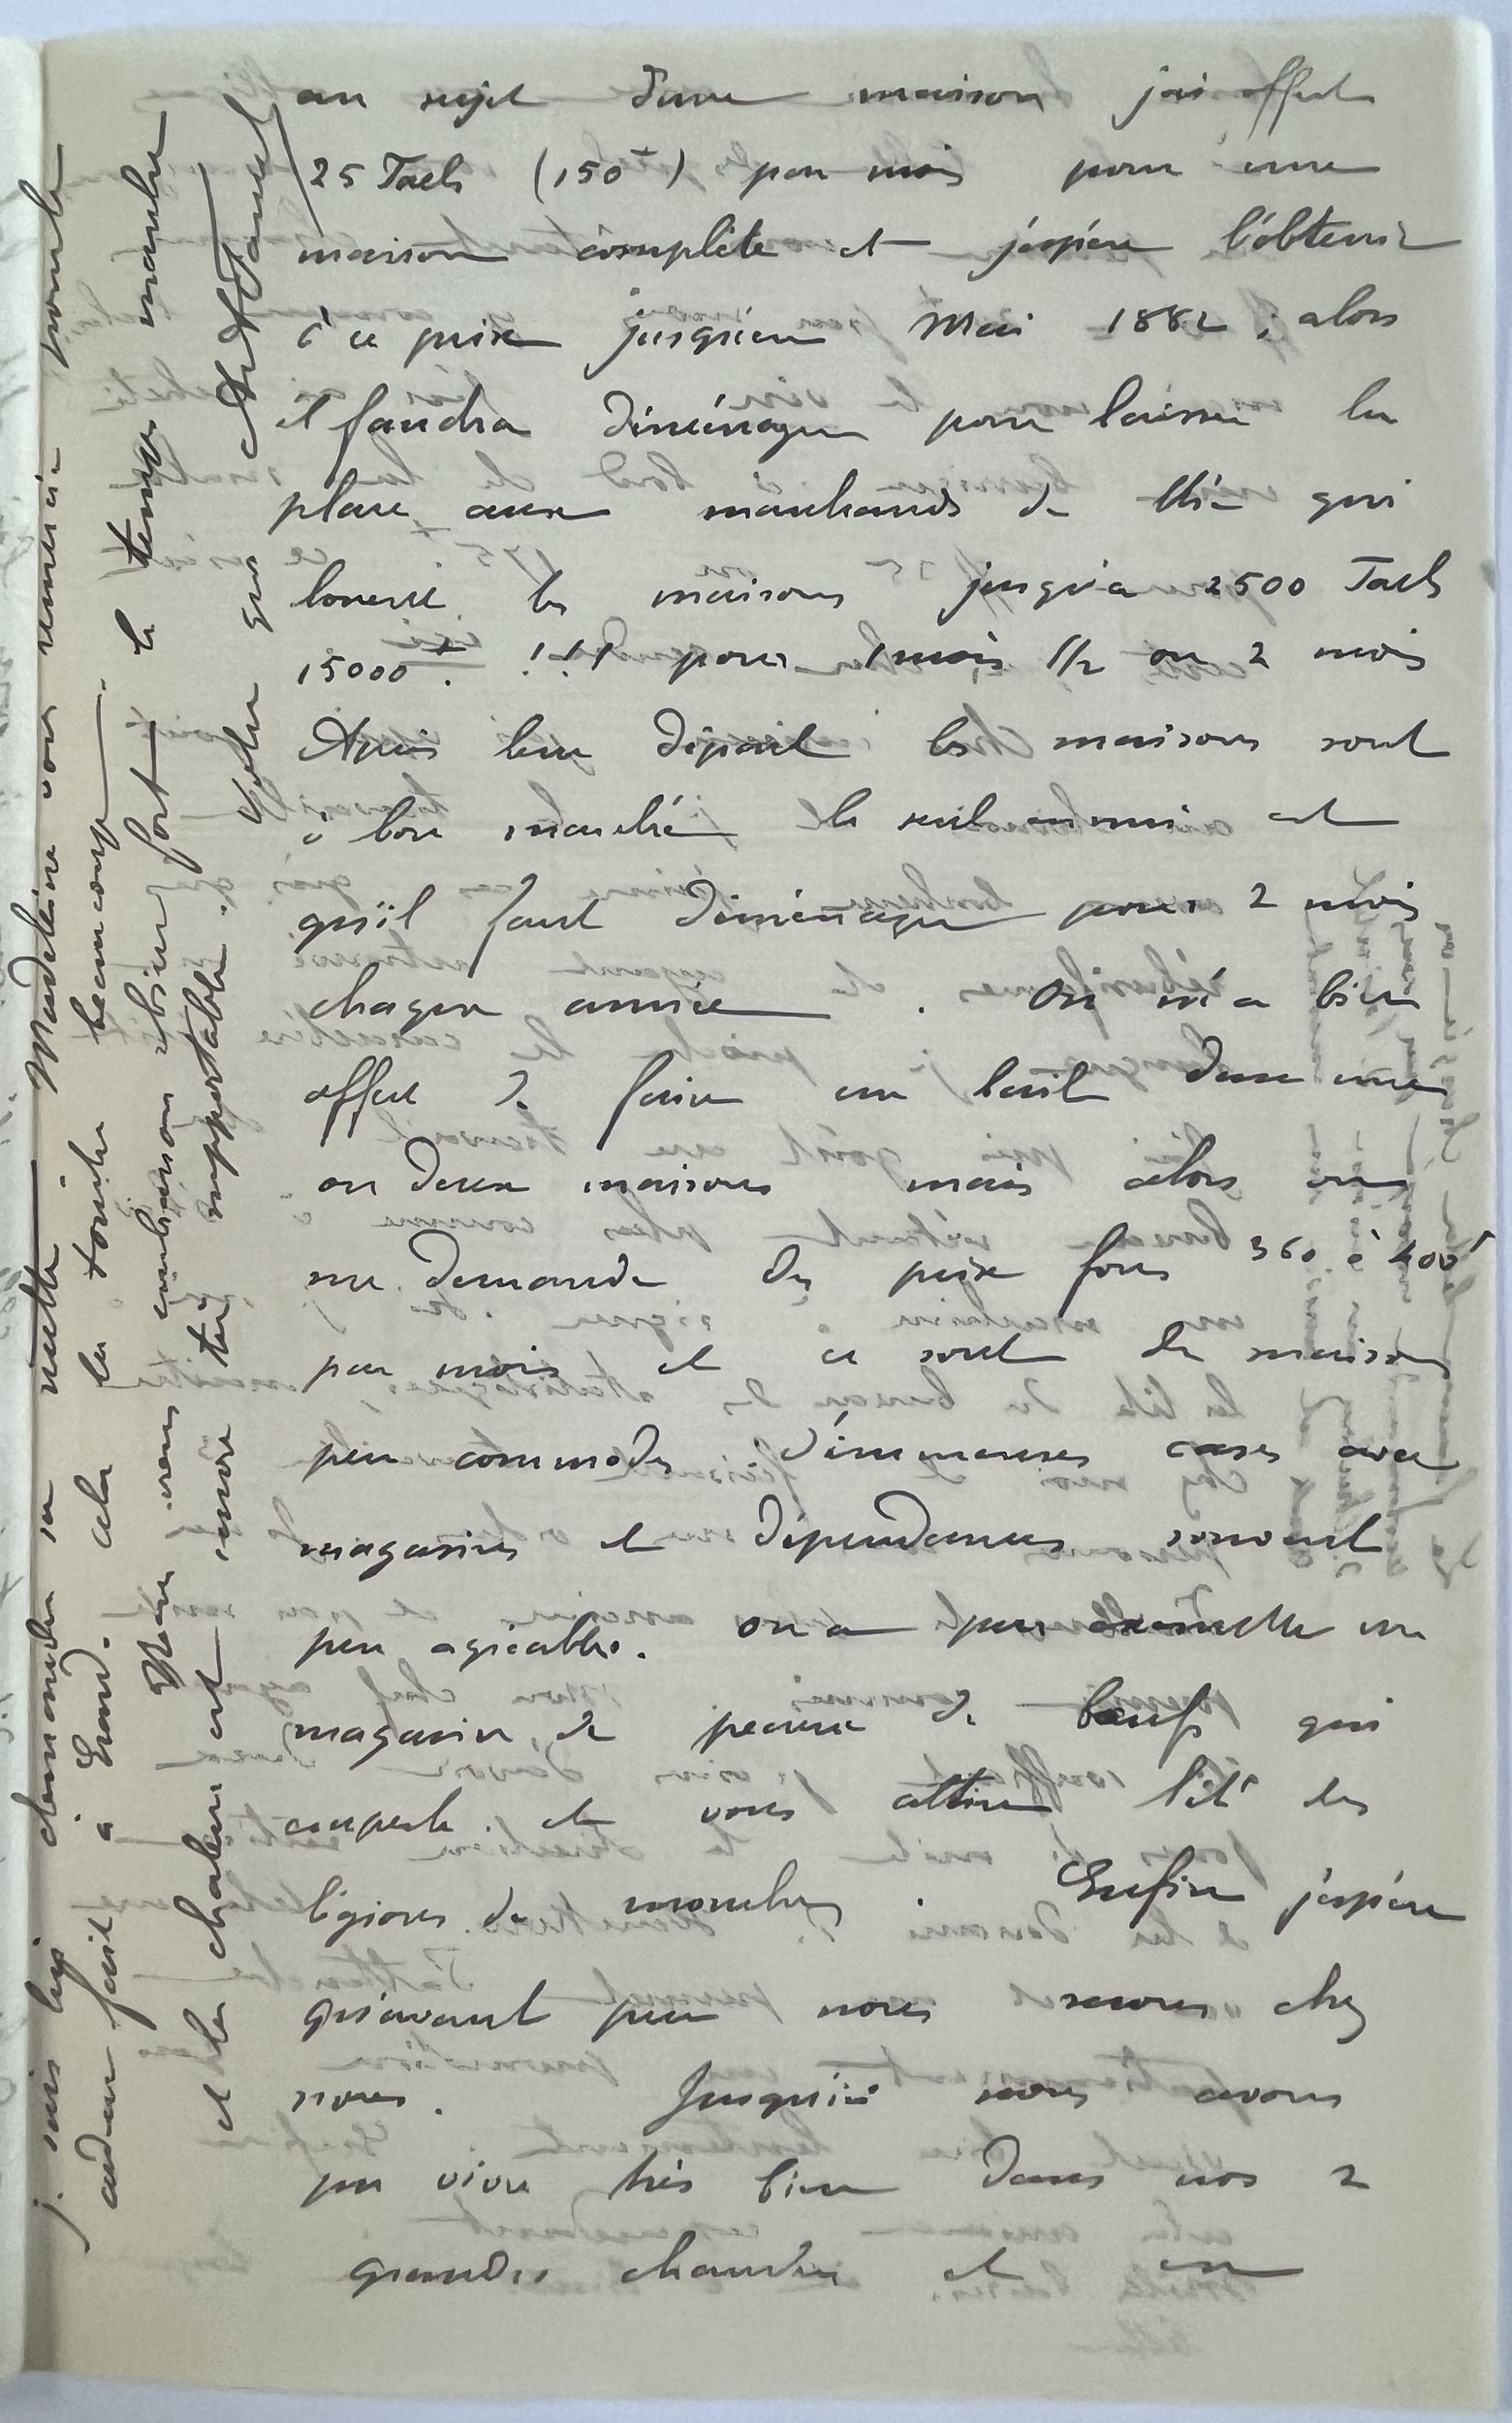 au sujet d'une maison j'ai offert
25 Taels (150f) par mois pour une
maison complète et j'espère l'obtenir
à ce prix jusqu'en Mai 1882 ; alors
il faudra déménager pour laisser la
place aux marchands de thé qui
louent les maisons jusqu'à 2500 Taels
15000f. !!! pour 1 mois 1/2 ou 2 mois
Après leur départ les maisons sont
à bon marché, le seul ennui est
qu'il faut déménager pour 2 mois
chaque année. On m'a bien
offert de faire un bail d'une
ou deux maisons mais alors on
me demande des prix fous 360 à 400f
par mois et ce sont de maisons
peu commodes d'immenses cases avec
magasins et dépendances souvent
peu agréables. On a par exemple un
magasin de peaux de bœufs qui
empeste et vous attire l'été des
légions de mouches. Enfin j'espère
qu'avant peu nous serons chez
nous. Jusqu'ici nous avons
pu vivre très bien dans nos 2
grandes chambres et un
je suis lui demander sa recette Madeleine vous remercie
cadeau fait à Errard. cela la touche beaucoup
Nous nous embrassons bien fort
et la chaleur est encore très supportable. le temps marche